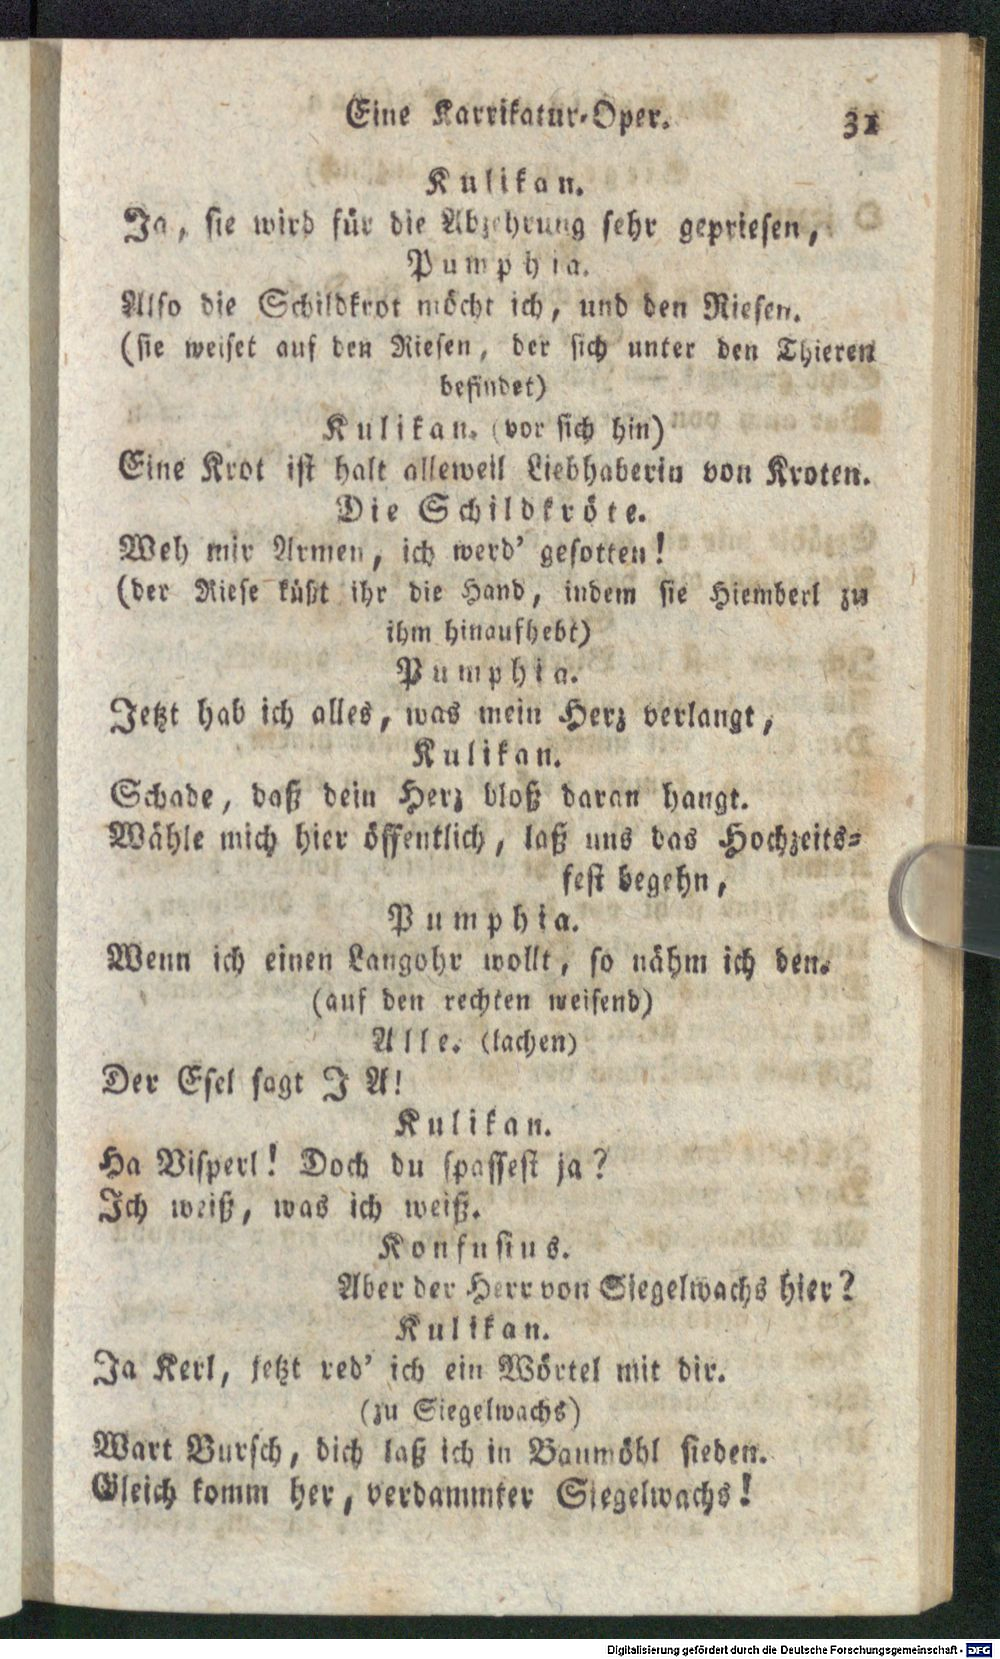 Eine Karrikatur-Oper. 31
Kulikan.
Ja, sie wird für die Abzehrung sehr gepriesen,
Pumphia.
Also die Schildkrot möcht ich, und den Riesen.
(sie weiset auf den Riesen, der sich unter den Thieren
befindet)
Kulikan. (vor sich hin)
Eine Krot ist halt alleweil Liebhaberin von Kroten.
Die Schildkröte.
Weh mir Armen, ich werd' gesotten!
(der Riese küßt ihr die Hand, indem sie Hiemberl zu
ihm hinaufhebt)
Pumphia.
Jetzt hab ich alles, was mein Herz verlangt,
Kulikan.
Schade, daß dein Herz bloß daran hangt.
Wähle mich hier öffentlich, laß uns das Hochzeits-
fest begehn,
Pumphia.
Wenn ich einen Langohr wollt, so nähm ich den.
(auf den rechten weisend)
Alle. (lachen)
Der Esel sagt J A!
Kulikan.
Ha Visperl! Doch du spassest ja?
Ich weiß, was ich weiß.
Konfusius.
Aber der Herr von Siegelwachs hier?
Kulikan.
Ja Kerl, jetzt red' ich ein Wörtel mit dir.
(zu Siegelwachs)
Wart Bursch, dich laß ich in Baumöhl sieden.
Gleich komm her, verdammter Siegelwachs!
Digitalisierung gefördert durch die Deutsche Forschungsgemeinschaft - DFG